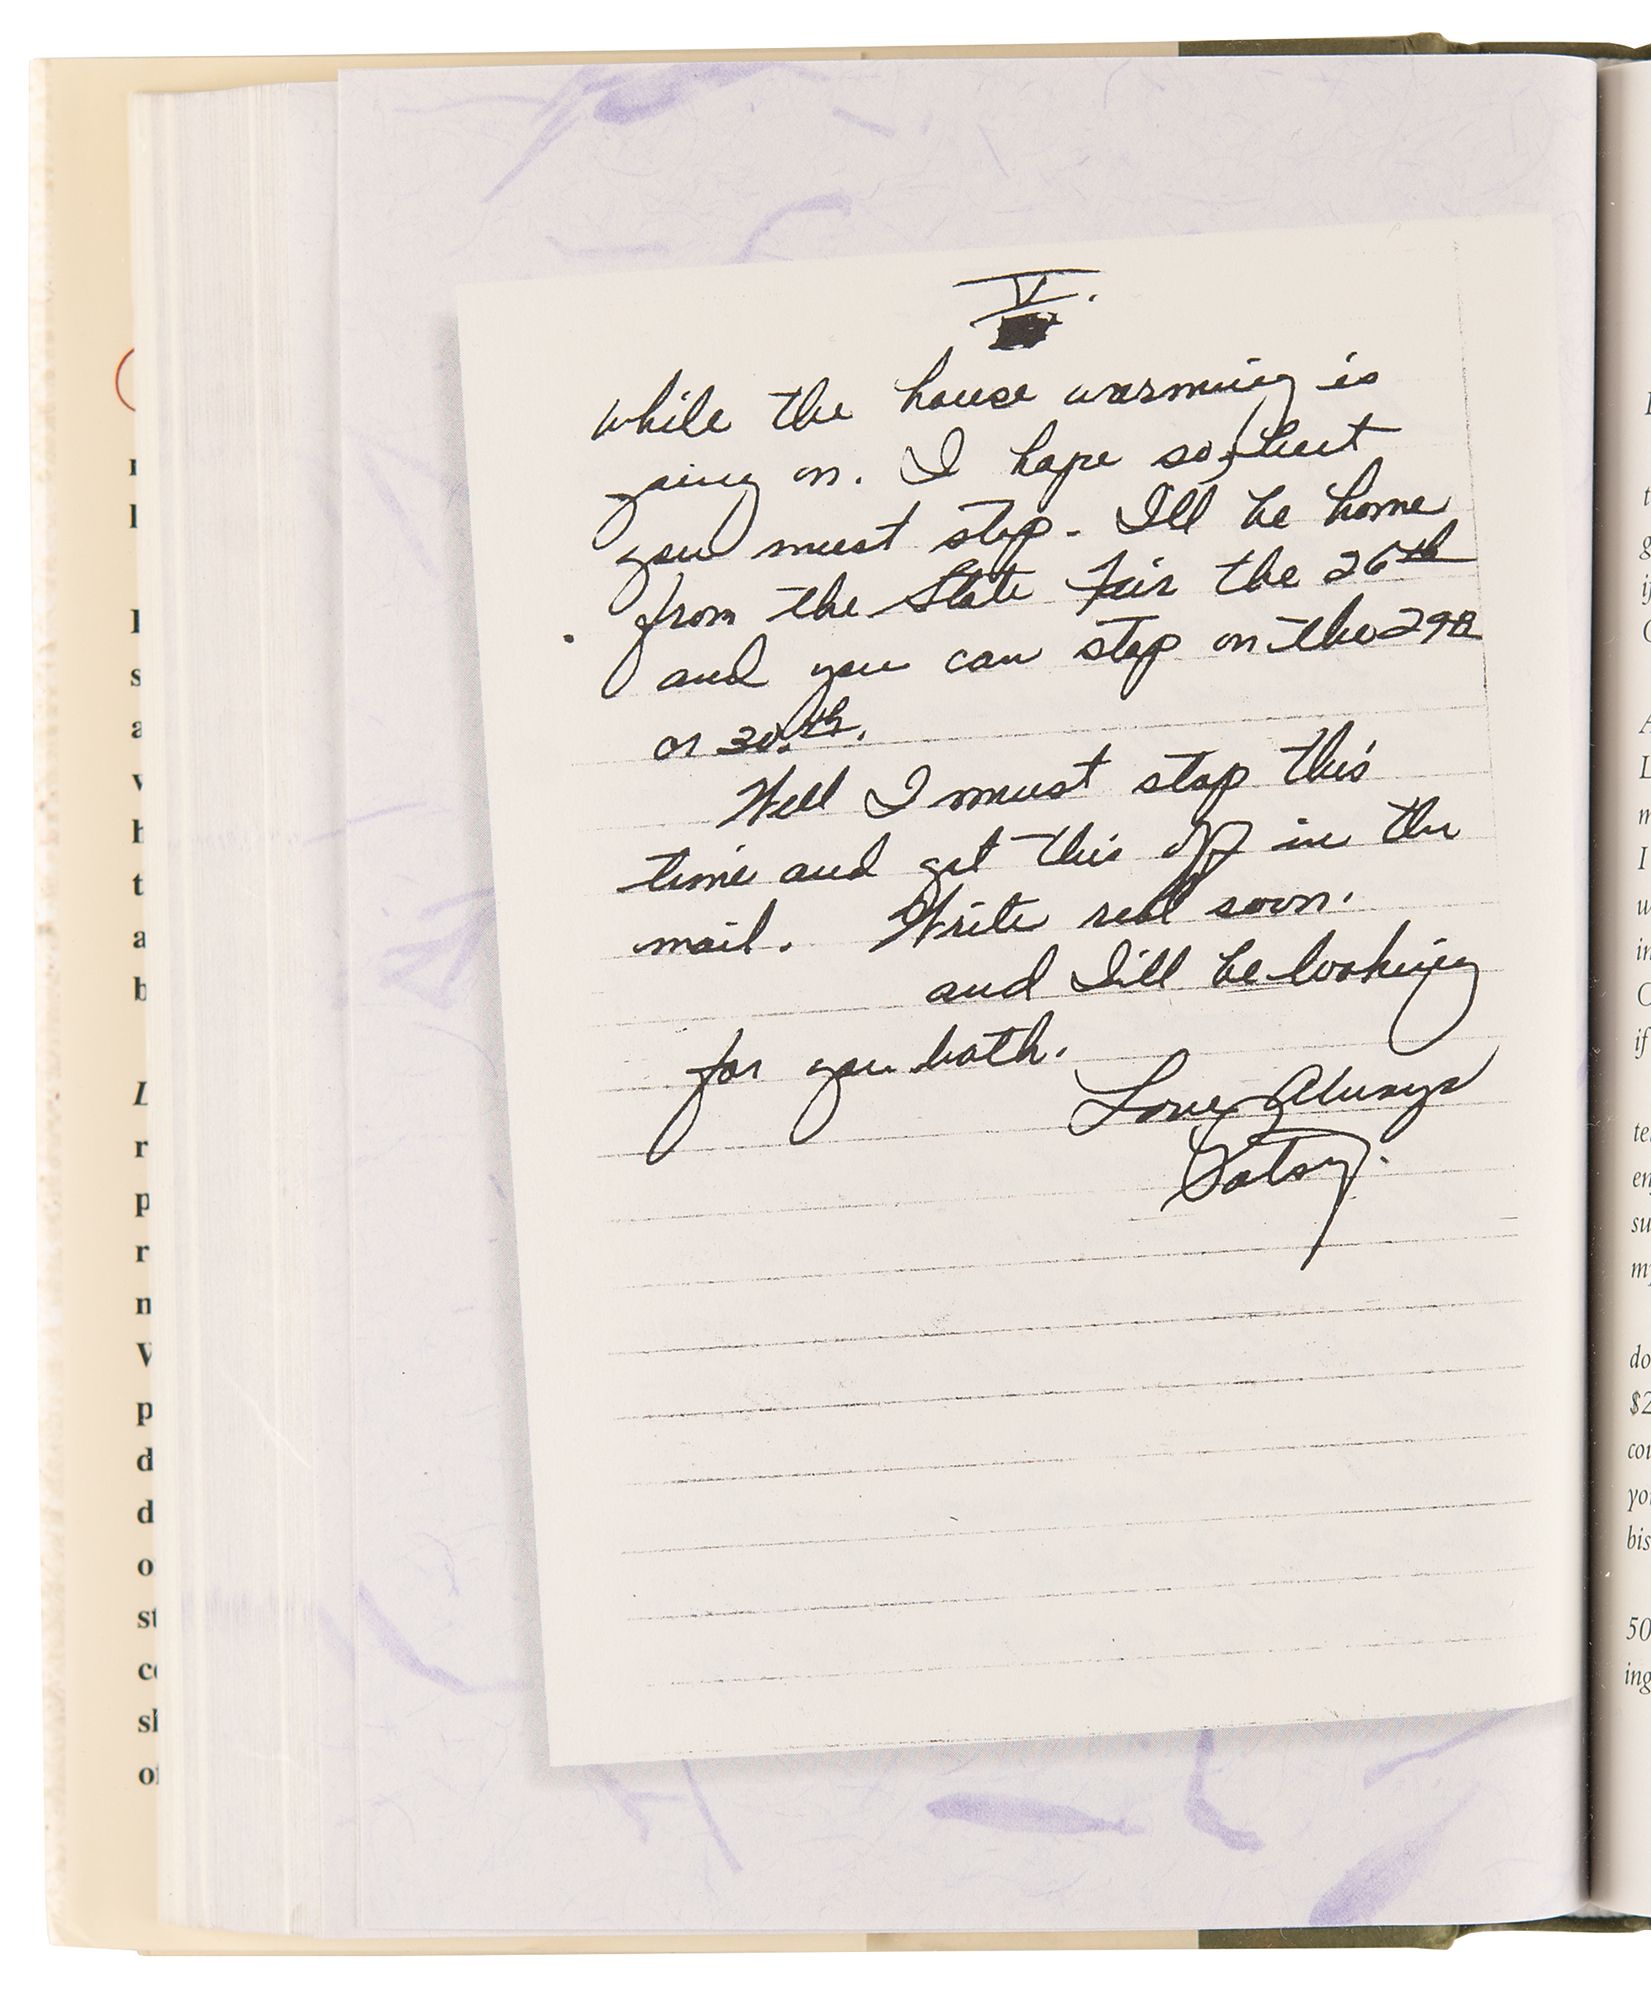 V.
while the house warming is
going on. I hope so, but
you must stop. I'll be home
from the State Fair the 26th
and you can stop on the 29th
or 30th.
Well I must stop this
time and get this off in the
mail. Write real soon.
and I'll be looking
for you both.
Love Always
Patsy.